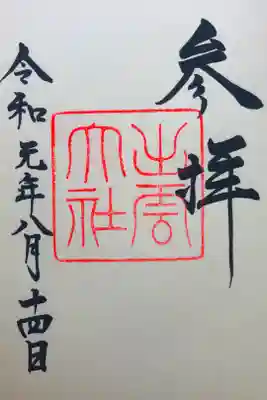 参拝
出雲
大社
令和元年八月十四日